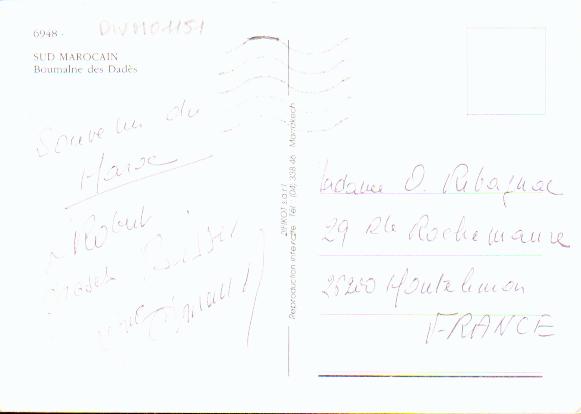 6948 -
DIVMO1151
SUD MAROCAIN
Boumalne des Dadès
Souvenir du
Maroc
Robert
ZIFIKOT s.a.r.l.
Reproduction interdite - Tél. (04) 338.46 - Marrakech
Madame O. Ribagnac
29 Rte Rochemaure
26200 Montelimar
FRANCE